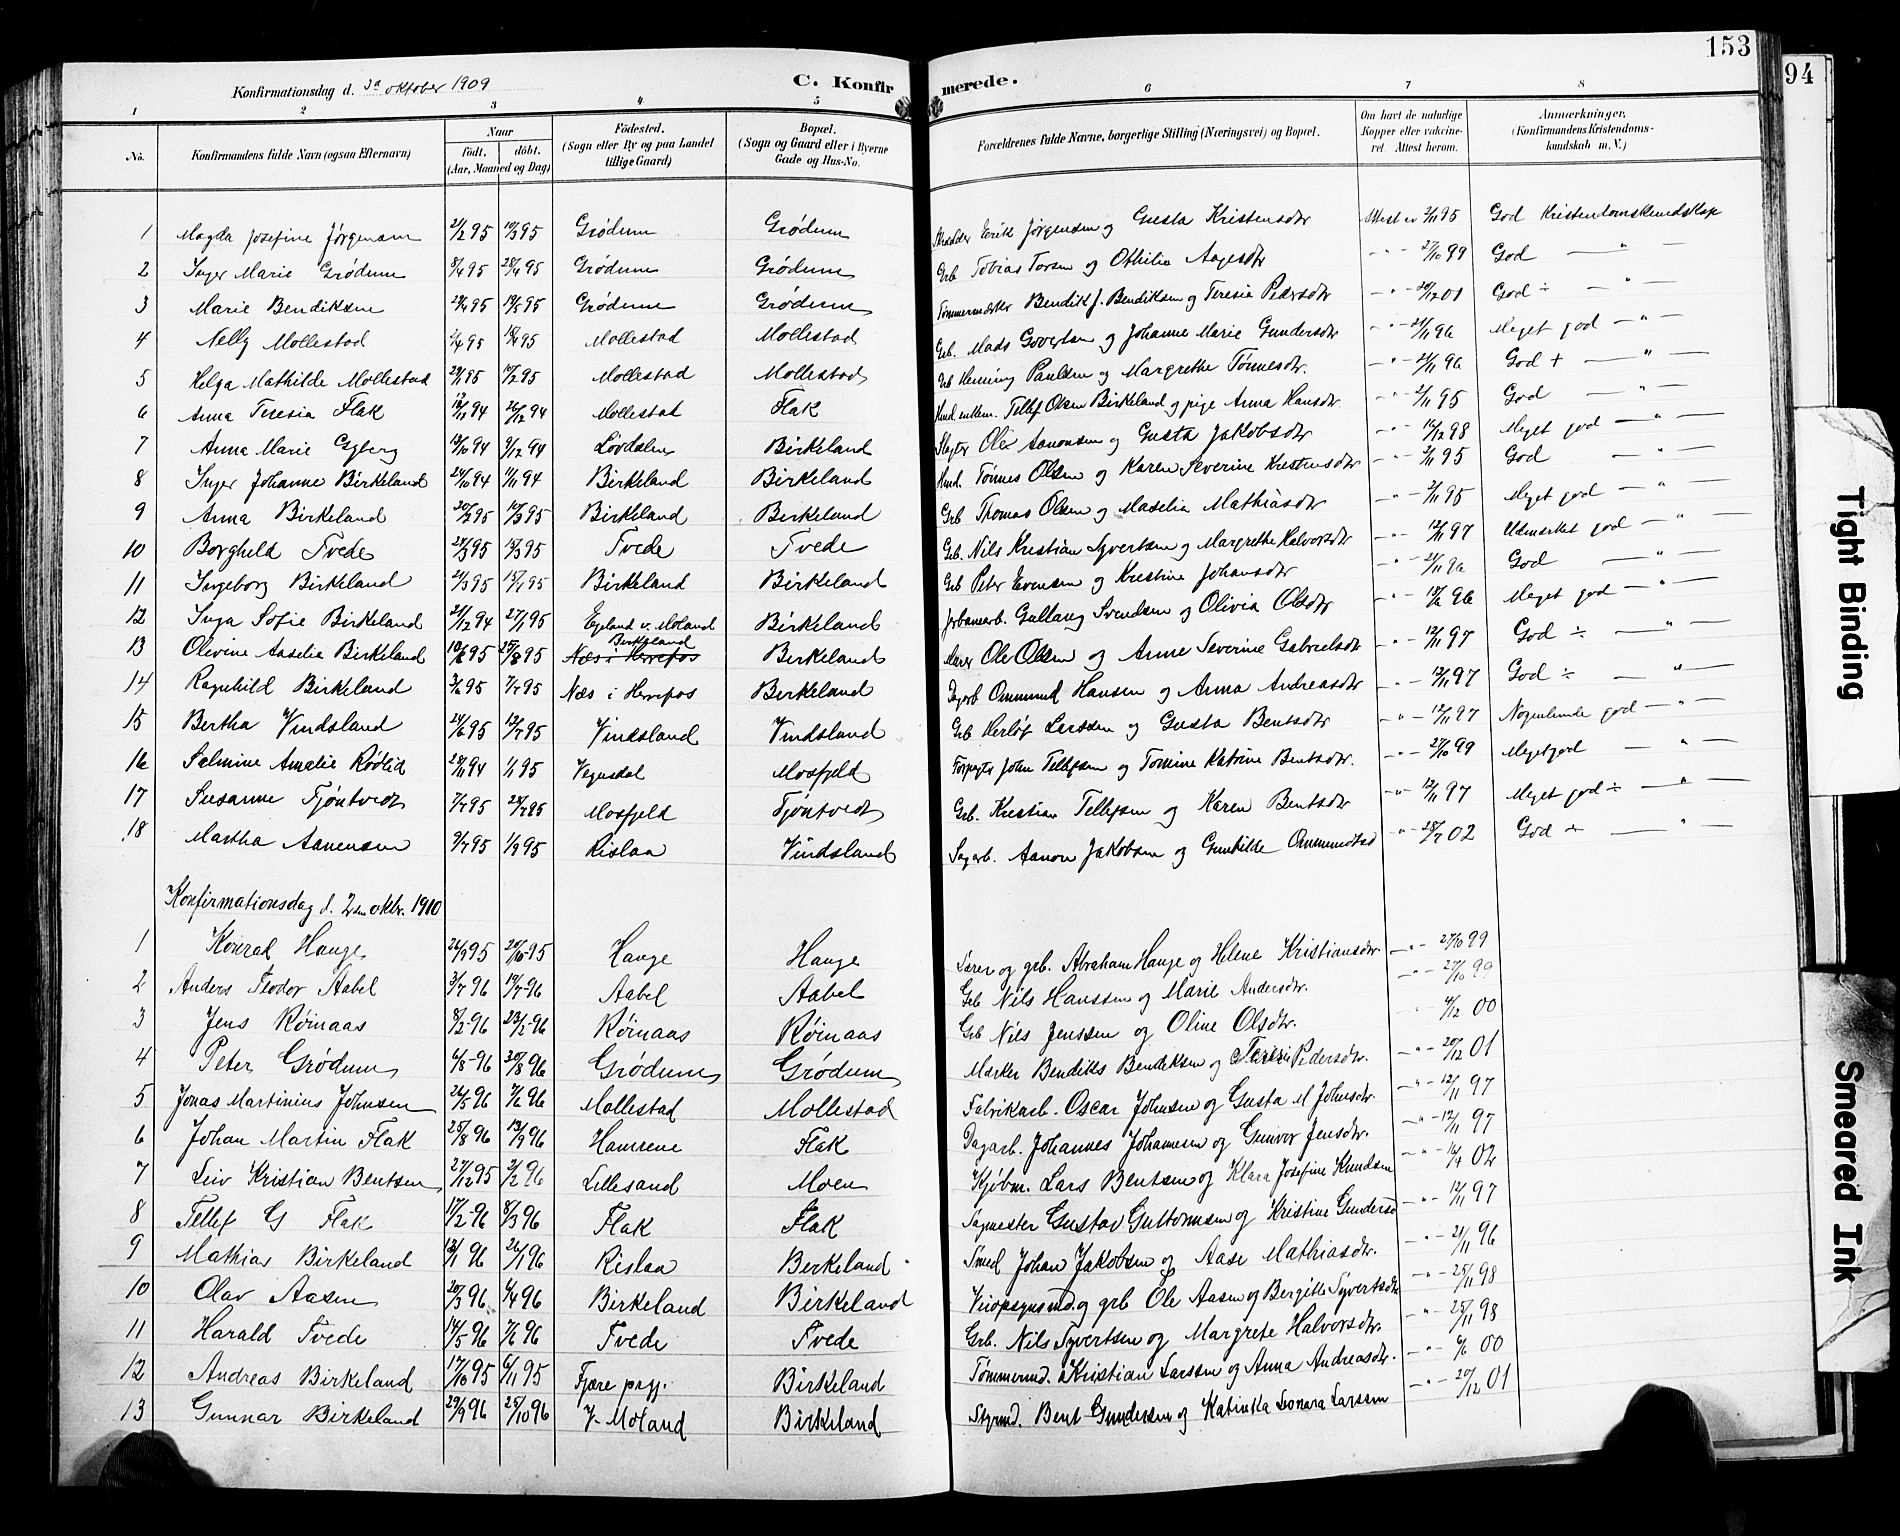 153
94
Konfirmationsdag d. 3a oktober 1909
C. Konfirmerede.
1 2 3 4 5 6 7 8
No. Konfirmandens fulde Navn (ogsaa Efternavn) Naar födt. döbt. (Aar, Maaned og Dag) Födested. (Sogn eller By og paa Landet tillige Gaard) Bopæl. (Sogn og Gaard eller i Byerne Gade og Hus-No. Forældrenes fulde Navne, borgerlige Stilling (Næringsvei) og Bopæl. Om havt de naturlige Kopper eller vakcineret. Attest herom. Anmærkninger, (Konfirmandens Kristendomskundskab m. V.)
1 Magda Josefine Jørgensen 2/2 95 10/3 95 Grødum Grødum Erik Jørgensen og Gusta Kristensdtr Attest av 2/11 95 God Kristendomskundskap
2 Inger Marie Grødum 8/4 95 28/4 95 Grødum Grødum Grb Tobias Torsen og Othilie Aagesdtr - " - 27/10 99 God — " —
3 Marie Bendiksen 29/4 95 19/5 95 Grødum Grødum Bendik J. Bendiksen og Teresie Pedersdtr - " - 20/12 01 God ÷ — " —
4 Nelly Mollestad 2/4 95 15/4 95 Mollestad Mollestad Grb. Mads Govertsen og Johanne Marie Gundersdtr - " - 21/11 96 Meget god — " —
5 Helga Mathilde Mollestad 29/1 95 17/2 95 Mollestad Mollestad Grb Henning Paulsen og Margrethe Tønnesdtr - " - 21/11 96 God + — " —
6 Anna Teresia Flak 12/11 94 26/12 94 Mollestad Flak Tellef Olsen Birkeland og pige Anna Hansdtr - " - 2/11 95 God — " —
7 Anna Marie Egberg 13/10 94 9/12 94 Lövdalen Birkeland Ole Aanonsen og Gusta Jakobsdtr - " - 12/12 98 Meget god — " —
8 Inger Johanne Birkeland 24/10 94 11/11 94 Birkeland Birkeland Hmd. Tønnes Olsen og Karen Severine Kristensdtr - " - 2/11 95 God — " —
9 Anna Birkeland 20/2 95 10/3 95 Birkeland Birkeland Grb Thomas Olsen og Maselia Mathiasdtr - " - 2/11 95 Meget god — " —
10 Borghild Tvede 21/2 95 15/3 95 Tvede Tvede Grb. Nils Kristian Syvertsen og Margrethe Halvorsdtr - " - 12/11 97 Udmerket god — " —
11 Ingeborg Birkeland 21/3 95 15/4 95 Birkeland Birkeland Grb Peter Evensen og Kristine Johansdtr - " - 21/11 96 God — " —
12 Inga Sofie Birkeland 21/12 94 27/1 95 Egeland v. Moland Birkeland Jrbanearb. Gullaug Svendsen og Olivia Olsdtr - " - 18/6 96 Meget god — " —
13 Olivine Aaselia Birkeland 10/6 95 25/8 95 Birkeland Næs i Herrefos Birkeland Ole Olsen og Anne Severine Gabrielsdtr - " - 12/11 97 God ÷ — " —
14 Ragnhild Birkeland 3/6 95 7/7 95 Næs i Herrefos Birkeland Dagarb Ommund Hansen og Anna Andreasdtr - " - 12/11 97 God ÷ — " —
15 Bertha Vindsland 24/6 95 12/7 95 Vindsland Vindsland Grb Herlöf Larssen og Gusta Bentsdtr - " - 12/11 97 Nogenlunde god — " —
16 Salmine Amalie Rødlid 29/11 94 1/1 95 Vegusdal Mosfjeld Forpagter John Tellefsen og Tomine Katrine Bentsdtr. - " - 27/10 99 Meget god — " —
17 Susanne Tjöntvedt 7/7 95 28/7 95 Mosfjeld Tjöntvedt Grb. Kristian Tellefsen og Karen Bentsdtr - " - 12/11 97 Meget god ÷ — " —
18 Martha Aanensen 9/7 95 1/9 95 Rislaa Vindsland Sagarb. Aanon Jakobsen og Gunhilde Ommundsd - " - 28/7 02 God ÷ — " —
Konfirmationsdag d. 2den oktbr. 1910
1 Konrad Hauge 26/9 95 20/10 95 Hauge Hauge Lærer og grb. Abraham Hauge og Helene Kristiansdtr. - " - 27/10 99
2 Anders Teodor Aabel 3/7 96 19/7 96 Aabel Aabel Grb Nils Hanssen og Marie Andersdtr. - " - 27/10 99
3 Jens Röinaas 8/2 96 23/2 96 Röinaas Röinaas Grb Nils Jenssen og Oline Olsdtr. " - 4/12 00
4 Peter Grødum 6/8 96 30/8 96 Grødum Grødum Mærker Bendiks Bendiksen og Teresie Pedersdtr. - " - 20/12 01
5 Jonas Martinius Johnsen 26/5 96 7/6 96 Mollestad Mollestad Fabrikarb. Oscar Johnsen og Gusta M Johnsdtr. - " - 12/11 97
6 Johan Martin Flak 25/8 96 13/9 96 Hamrene Flak Dagarb. Johannes Johannesen og Gunvor Jensdtr. " - 12/11 97
7 Leiv Kristian Bentsen 27/12 95 2/2 96 Lillesand Moen Kjøbm. Lars Bentsen og Klara Josefine Knudsen " - 16/4 02
8 Tellef G Flak 17/2 96 8/3 96 Flak Flak Sagmester Gustav Guttormsen og Kristine Gundersd - " - 12/11 97
9 Mathias Birkeland 12/1 96 26/1 96 Rislaa Birkeland Smed Johan Jakobsen og Aase Mathiasdtr. - " - 21/11 96
10 Olav Aasen 20/3 96 4/4 96 Birkeland Birkeland Veiopsynsmd. og grb Ole Aasen og Bergitte Syvertsdtr " - 25/11 98
11 Harald Tvede 14/5 96 7/6 96 Tvede Tvede Grb. Nils Syvertsen og Margrete Halvorsdtr. " - 25/11 98
12 Andreas Birkeland 17/10 95 6/11 95 Fjære pgj. Birkeland Tømmermd. Kristian Larssen og Anna Andreasdtr. - " - 4/6 00
13 Gunnar Birkeland 29/9 96 25/10 96 V. Moland Birkeland Styrmd. Bent Gundersen og Katinka Leonora Larssen - " - 20/12 01
Tight Binding
Smeared Ink